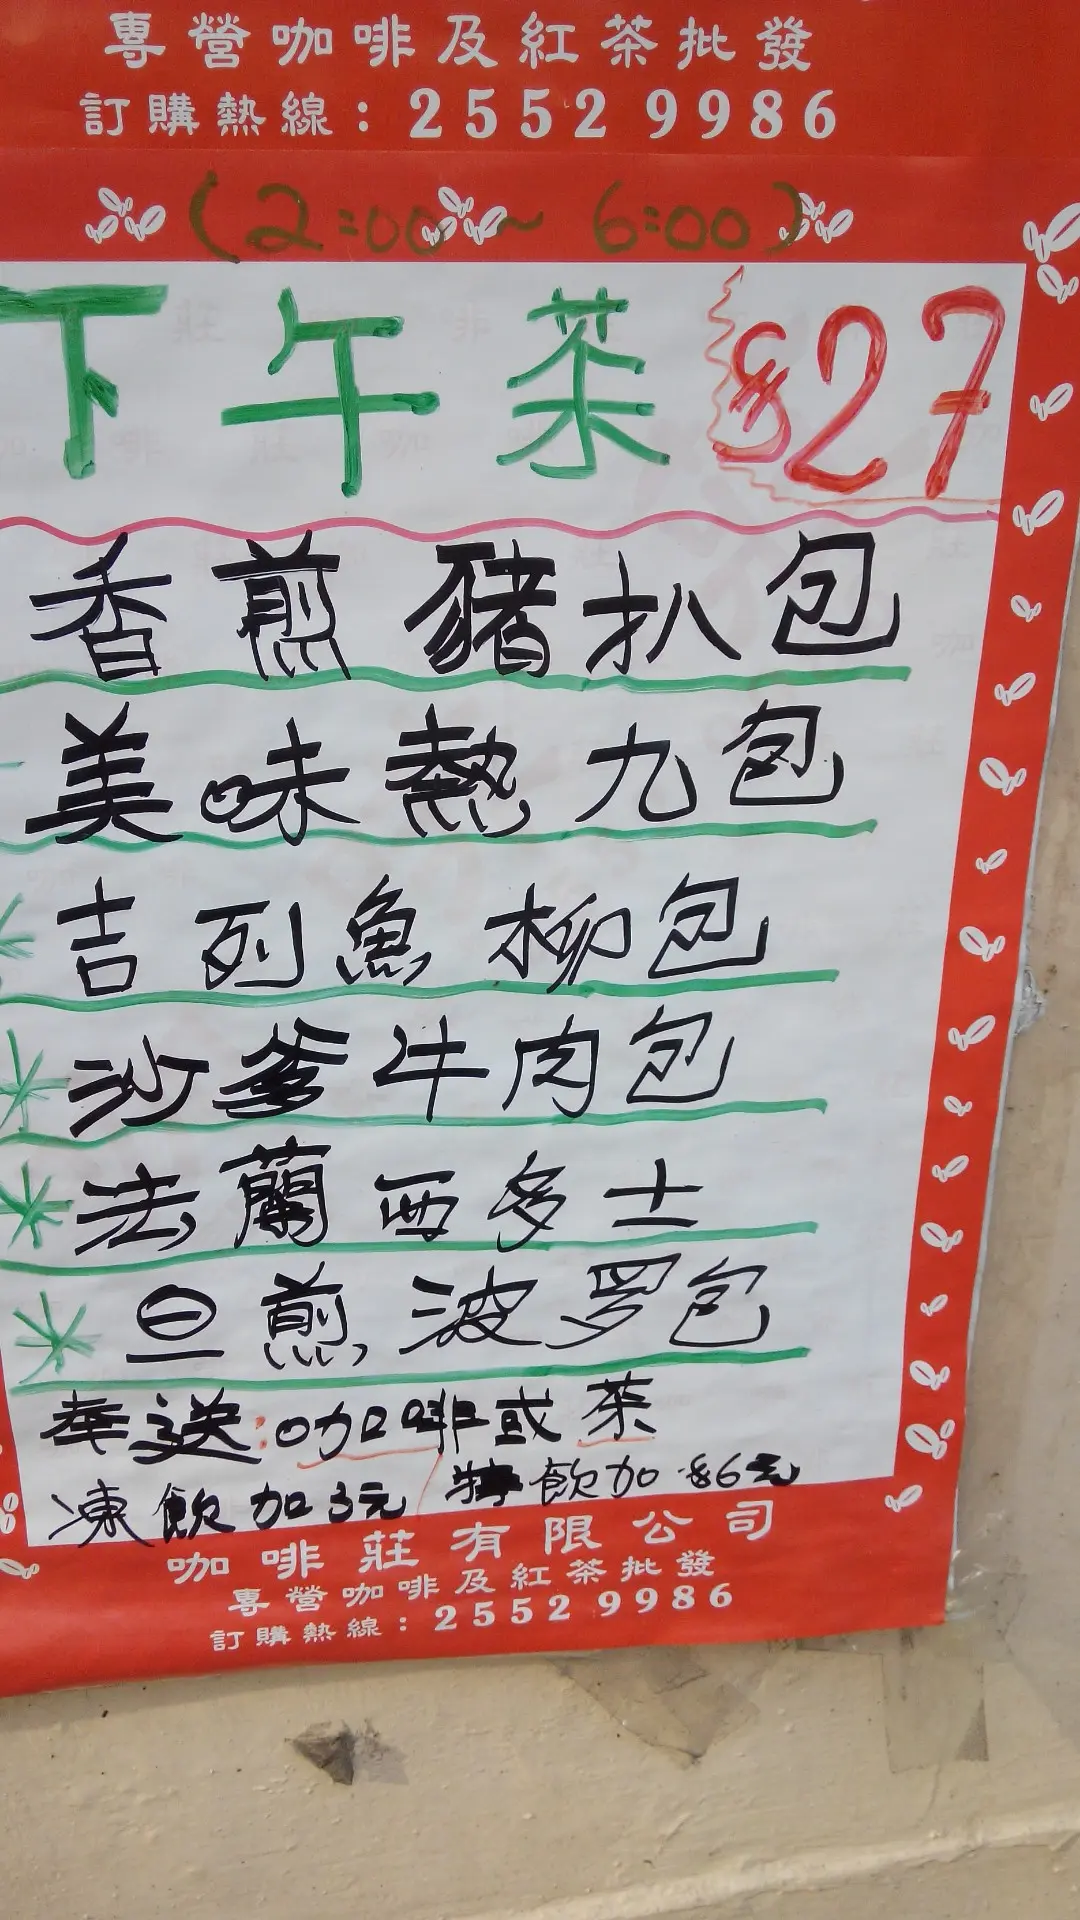 專營咖啡及紅茶批發
訂購熱線：2552 9986
(2:00 ~ 6:00)
下午茶 $27
香煎豬扒包
美味熱九包
吉列魚柳包
沙爹牛肉包
法蘭西多士
旦煎波罗包
奉送:咖啡或茶
凍飲加3元 特飲加$6元
咖啡莊有限公司
專營咖啡及紅茶批發
訂購熱線：2552 9986